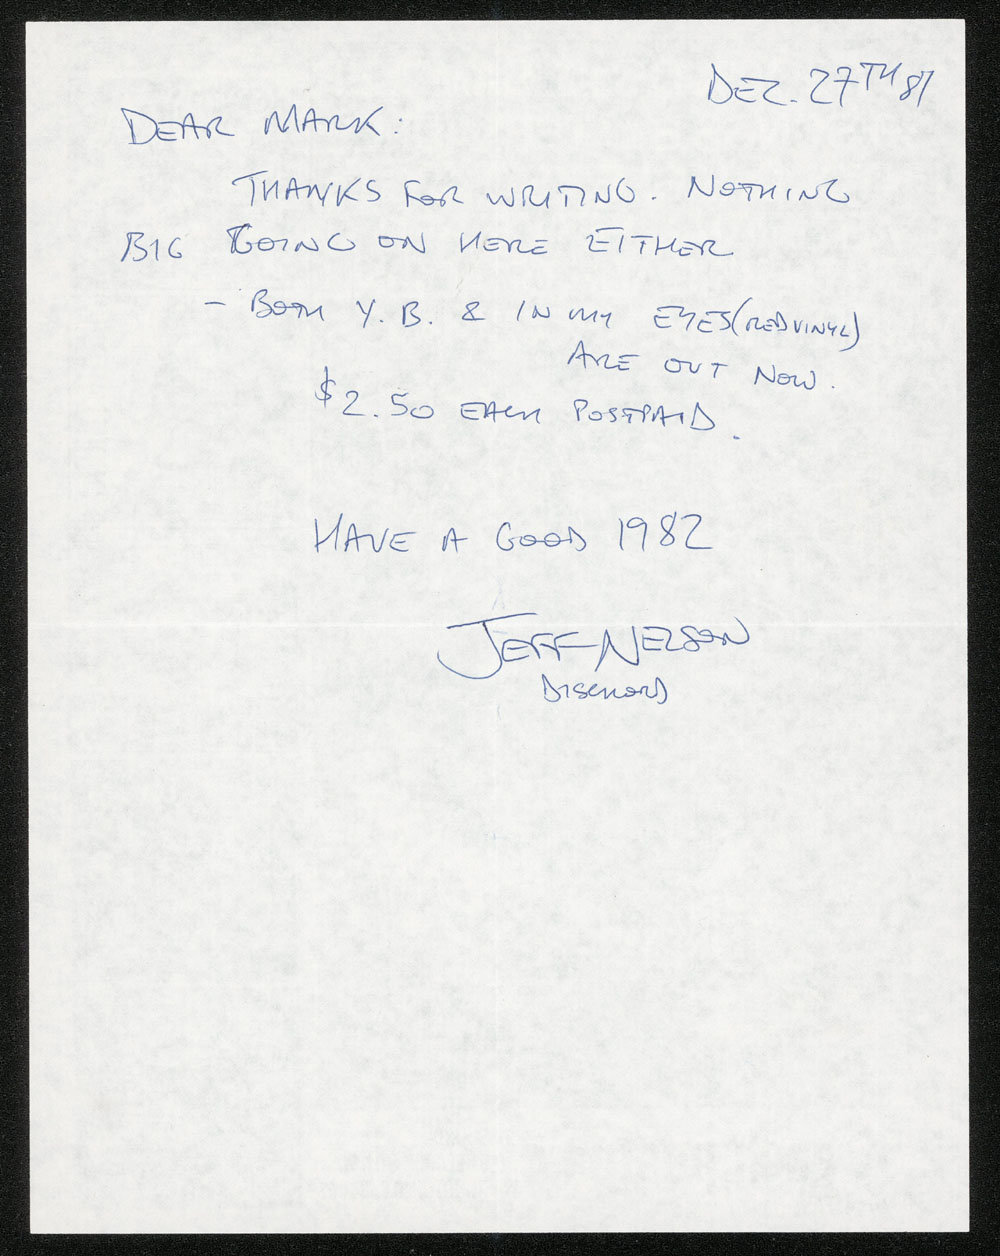 DEC. 27TH 81
DEAR MARK:
THANKS FOR WRITING. NOTHING
BIG GOING ON HERE EITHER
- BOTH Y. B. & IN MY EYES (RED VINYL)
ARE OUT NOW.
$2.50 EACH POSTPAID.
HAVE A GOOD 1982
JEFF NELSON
DISCHORD